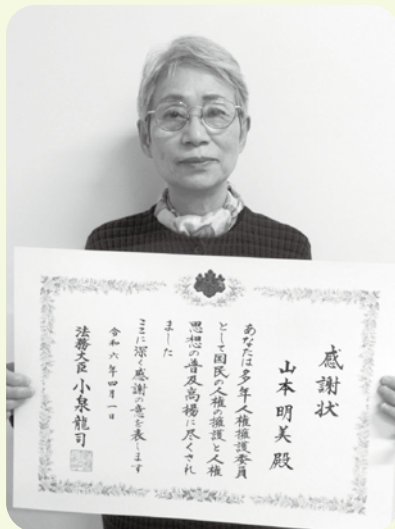 感謝状
山本明美殿
あなたは多年人権擁護委員
として国民の人権の擁護と人権
思想の普及高揚に尽くされ
ました
ここに深く感謝の意を表します
令和六年四月一日
法務大臣 小泉龍司